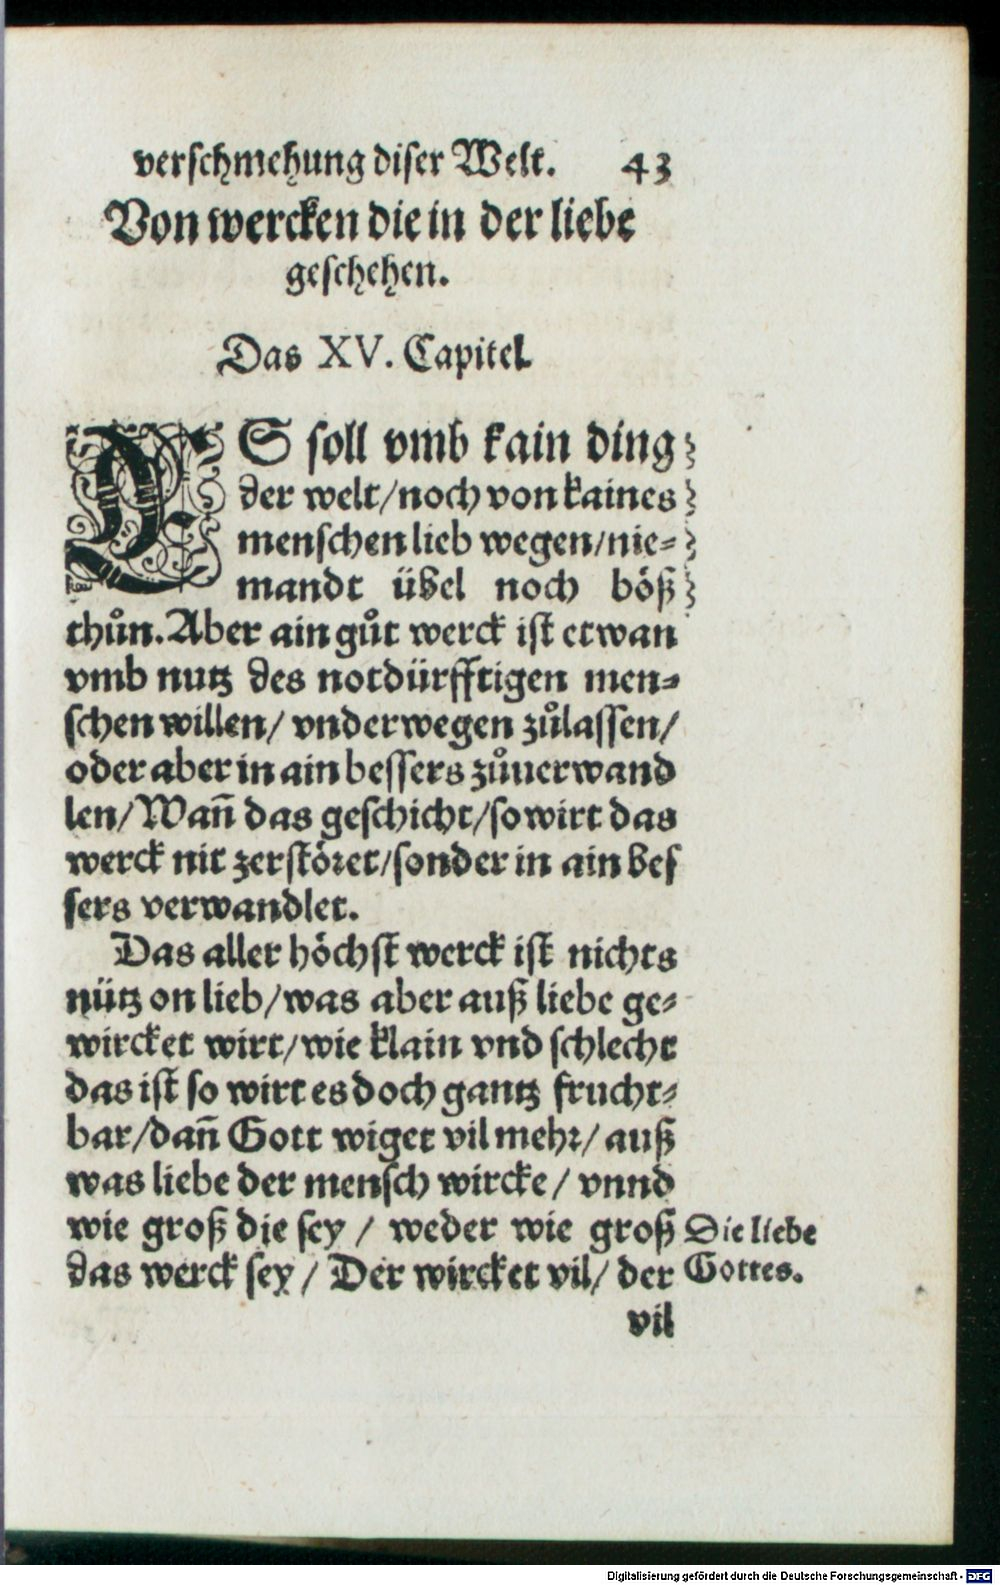 verschmehung diser Welt. 43
Von wercken die in der liebe
geschehen.
Das XV. Capitel
ES soll vmb kain ding
der welt/noch von kaines
menschen lieb wegen/nie-
mandt übel noch böß
thůn. Aber ain gůt werck ist etwan
vmb nutz des notdürfftigen men-
schen willen/ vnderwegen zůlassen/
oder aber in ain bessers zůuerwand
len/Wañ das geschicht/so wirt das
werck nit zerstöret/sonder in ain bes
sers verwandlet.
Das aller höchst werck ist nichts
nütz on lieb/was aber auß liebe ge-
wircket wirt/wie klain vnd schlecht
das ist so wirt es doch gantz frucht-
bar/dañ Gott wiget vil mehr/ auß
was liebe der mensch wircke/ vnnd
wie groß die sey / weder wie groß
das werck sey / Der wircket vil/ der
Die liebe
Gottes.
vil
Digitalisierung gefördert durch die Deutsche Forschungsgemeinschaft - DFG